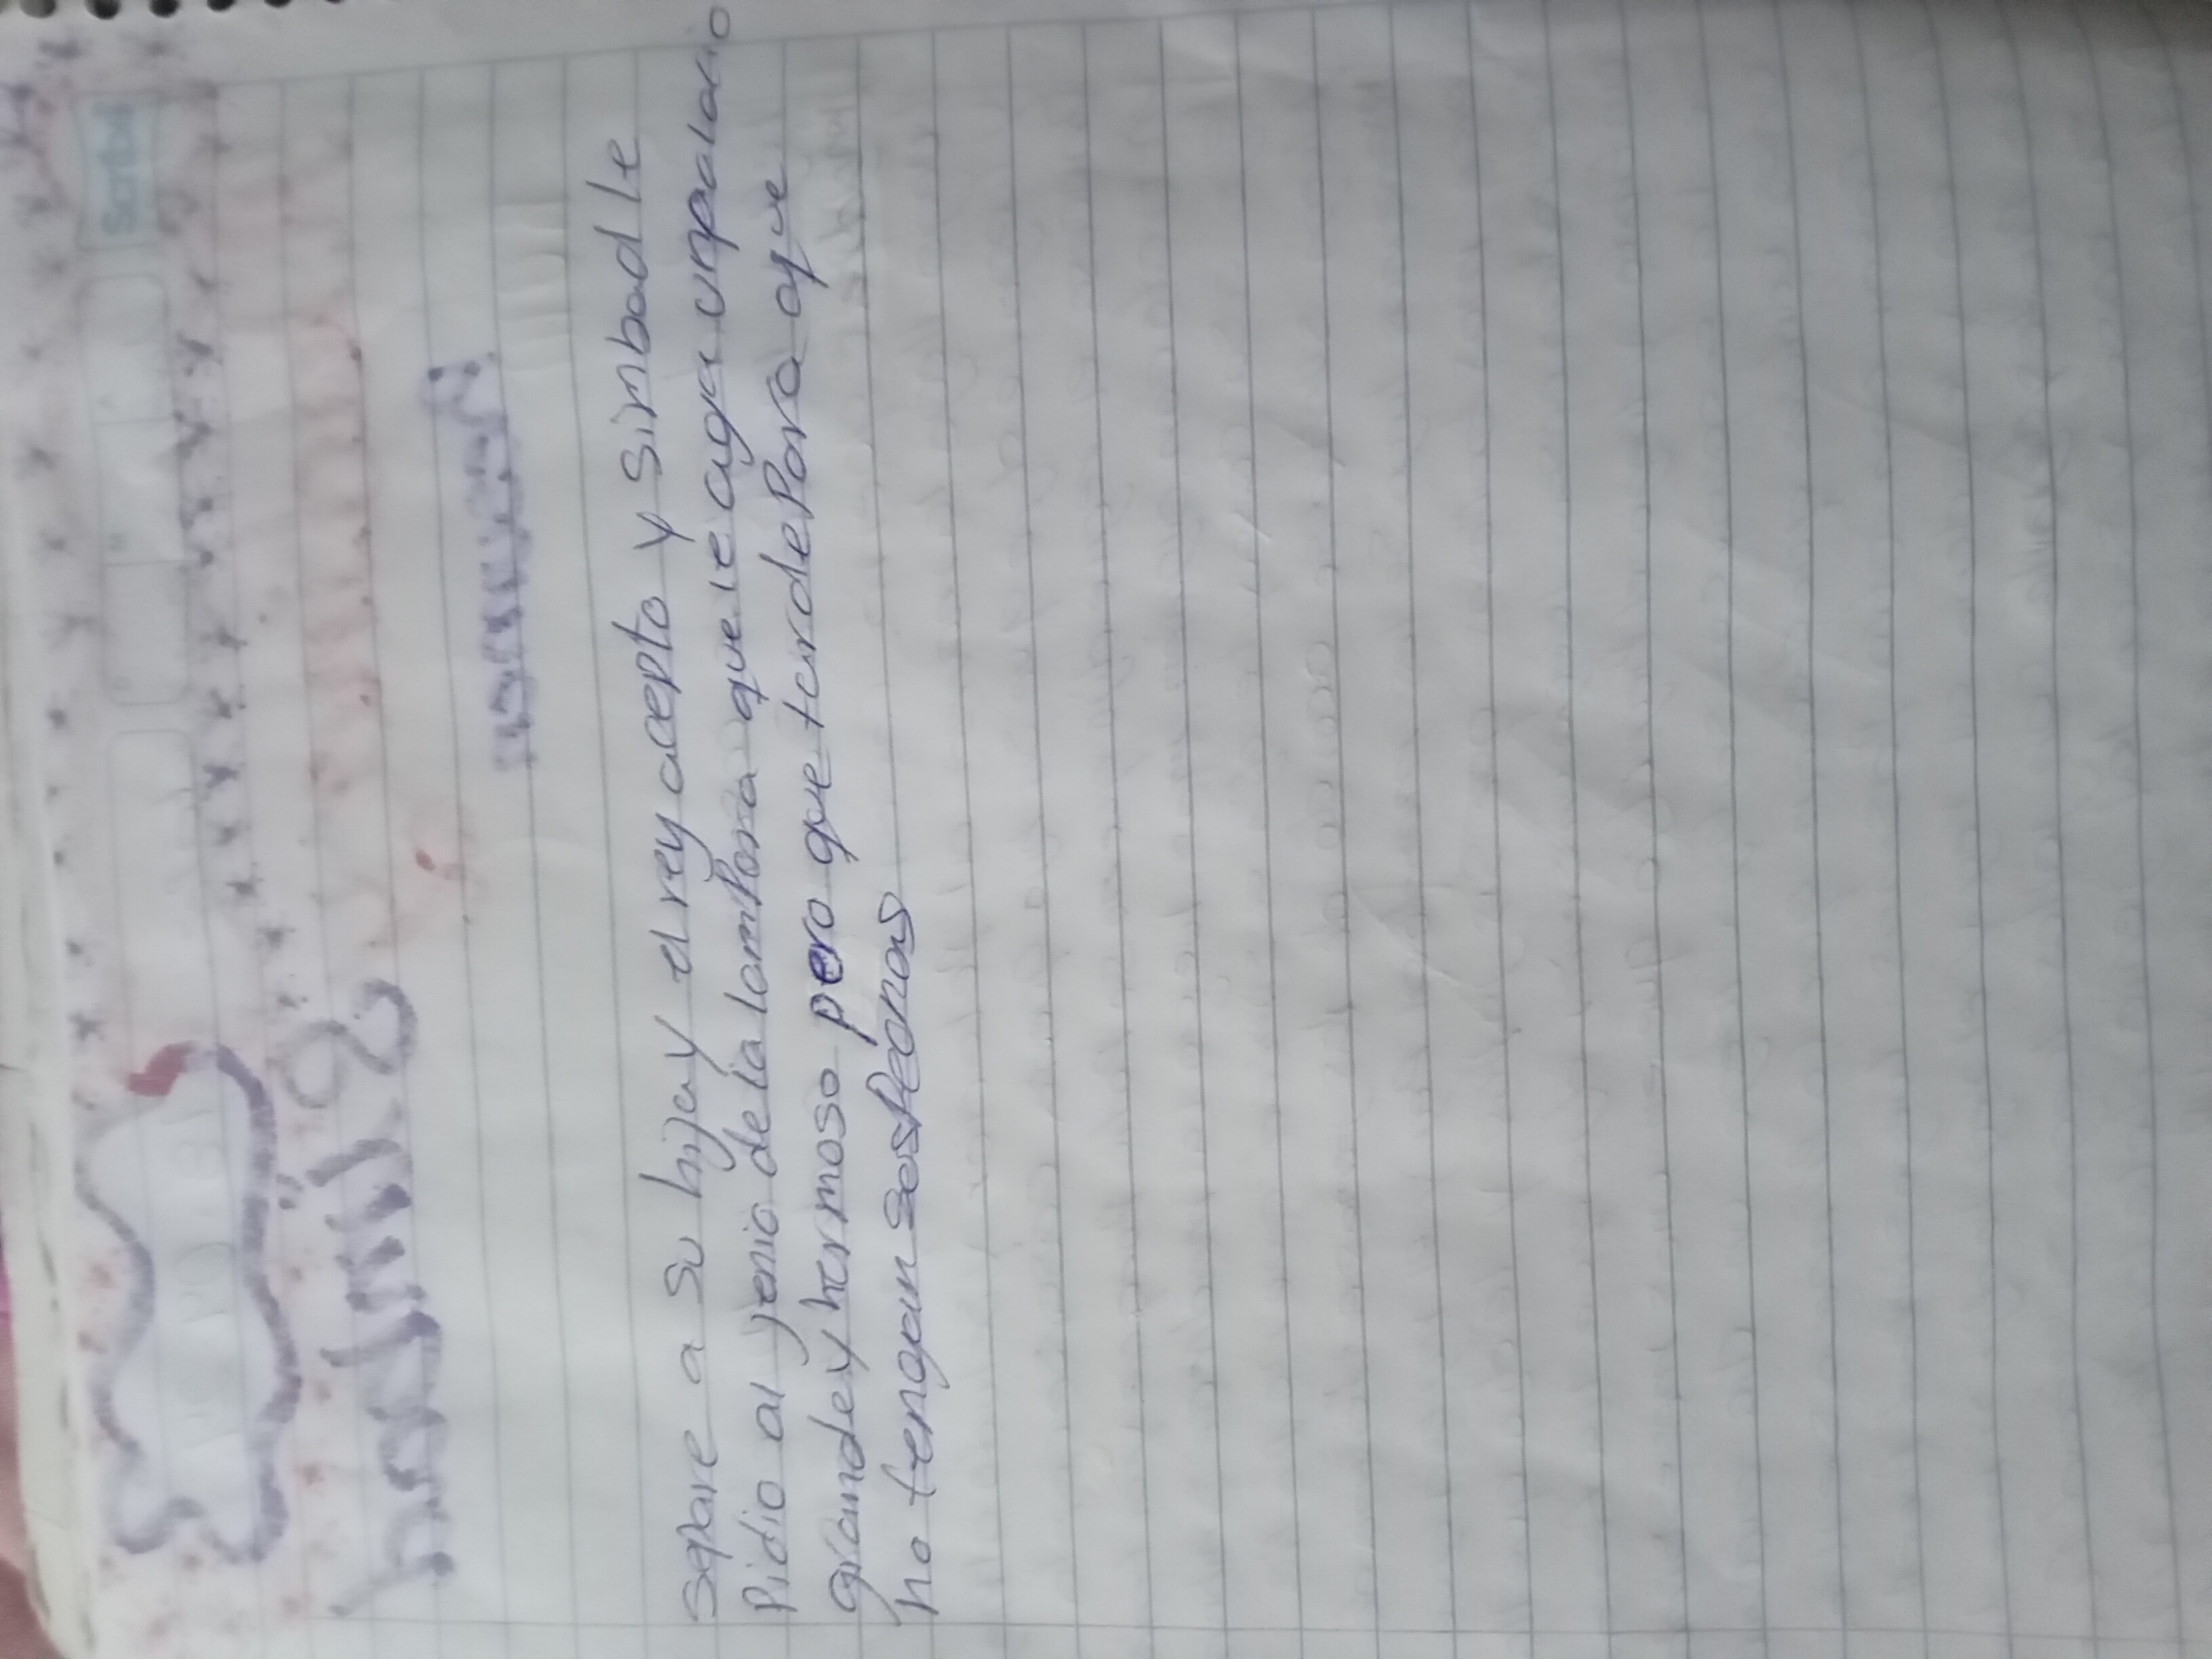 separe a su hija y el rey acepto y simbad le
Pidio al yenio de la lampara que le aga un palacio
grande y hermoso pero que tarde Para que
no tengan sospechas
Scribe